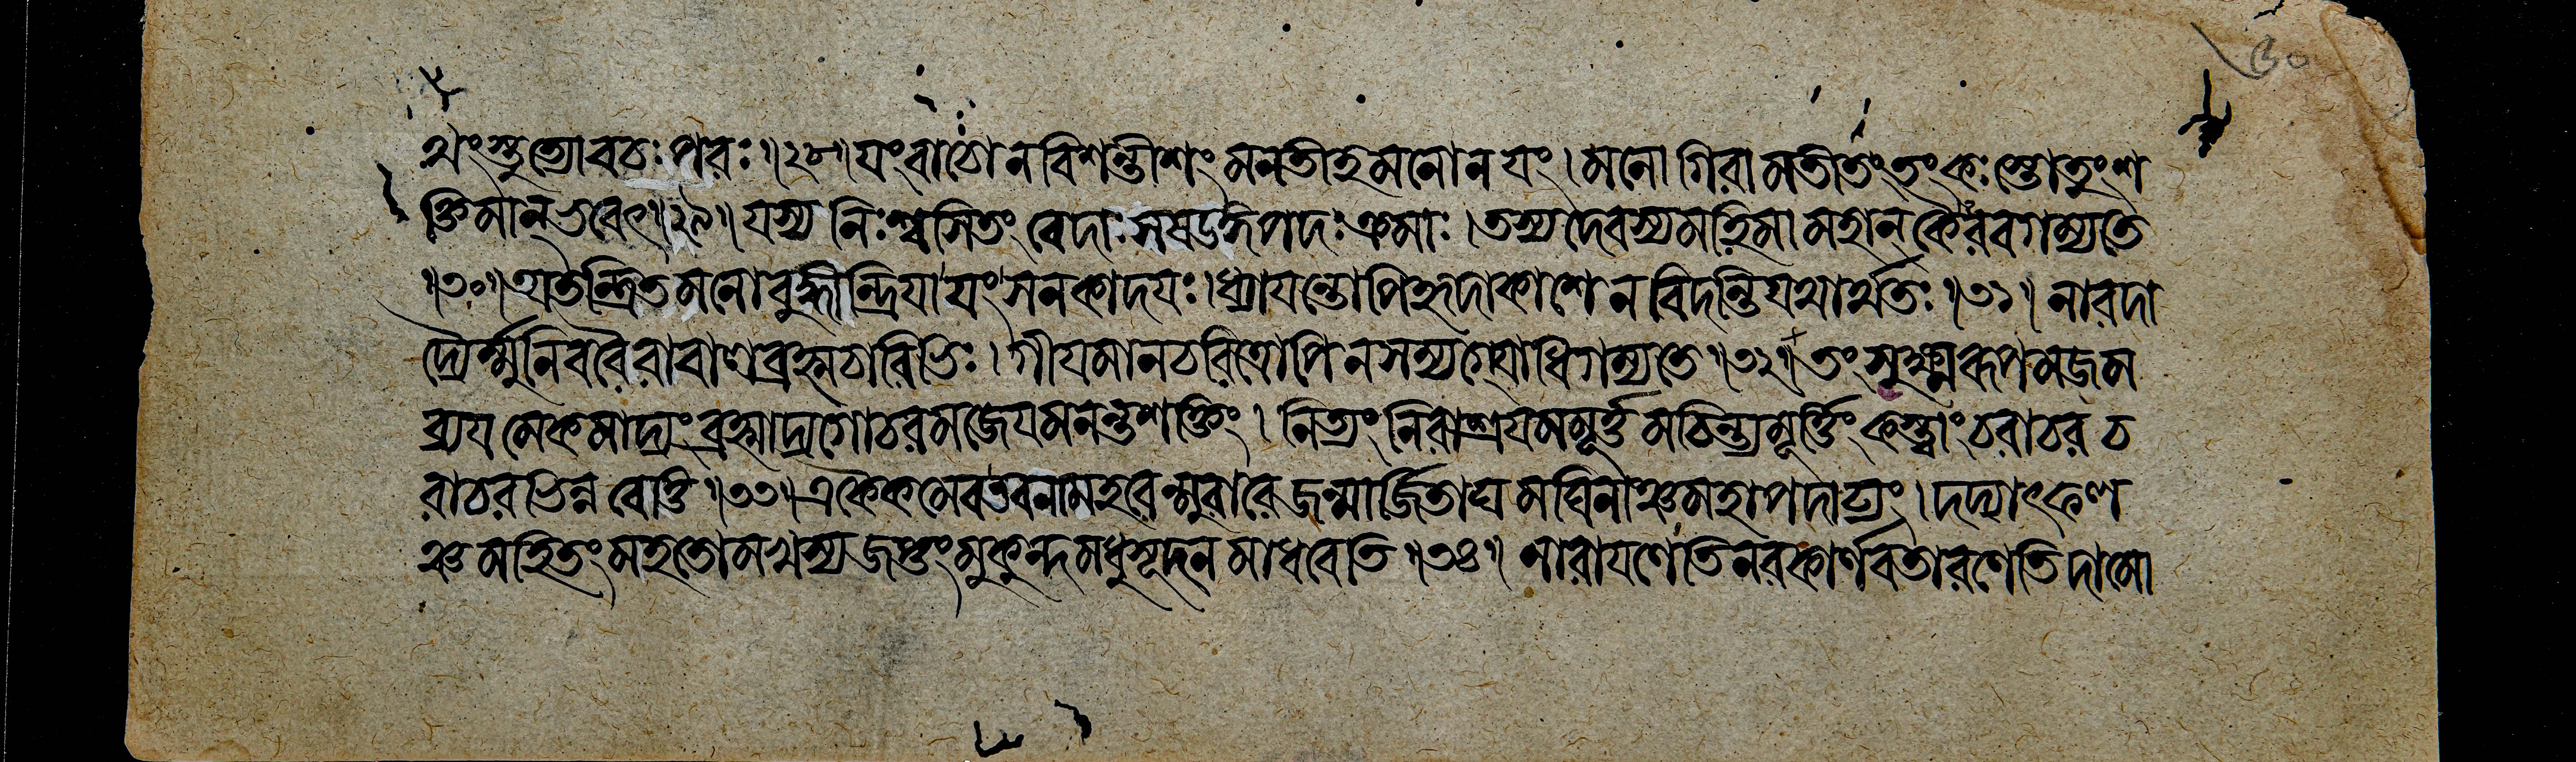 ৫০
থং স্তুত্যো বচঃ পরঃ ॥২৮॥ যং বাচো ন বিশন্তীশং মনতীহ মনো ন যং । মনো গিরামতীতং তং কঃ স্তোতুং শ
ক্তিমান্ ভবেৎ ॥২৯॥ যস্য নিঃশ্বসিতং বেদাঃ সষডঙ্গপদঃ ক্রমাঃ । তস্য দেবস্য মহিমা মহান্ কৈরবগম্যতে
॥৩০॥ অতন্দ্রিতমনোবুদ্ধীন্দ্রিযা যং সনকাদযঃ । ধ্যাযন্তোপি হৃদাকাশে ন বিদন্তি যথার্থতঃ ॥৩১॥ নারদা
দ্যৈর্ম্মুনিবরৈরাবালব্রহ্মচারিভিঃ । গীযমানচরিত্রোপি ন সম্যগ্যোধিগম্যতে ॥৩২॥ তং সূক্ষ্মরূপমজম
ব্যযমেকমাদ্যং ব্রহ্মাদ্যগোচরমজেযমনন্তশক্তিং । নিত্যং নিরাশ্রযমমূর্ত্তমচিন্ত্যমূর্ত্তিং কস্ত্বাং চরাচর চ
রাচরভিন্ন বেত্তি ॥৩৩॥ একৈকমেব তব নাম হরেন্মুরারে জন্মার্জিতাঘমঘিনাঞ্চ মহাপদাঢ্যং । দদ্যাৎ ফল
ঞ্চ মহিতং মহতো মখস্য জপ্তং মুকুন্দ মধুসূদন মাধবেতি ॥৩৪॥ নারাযণেতি নরকার্ণবতারণেতি দামো